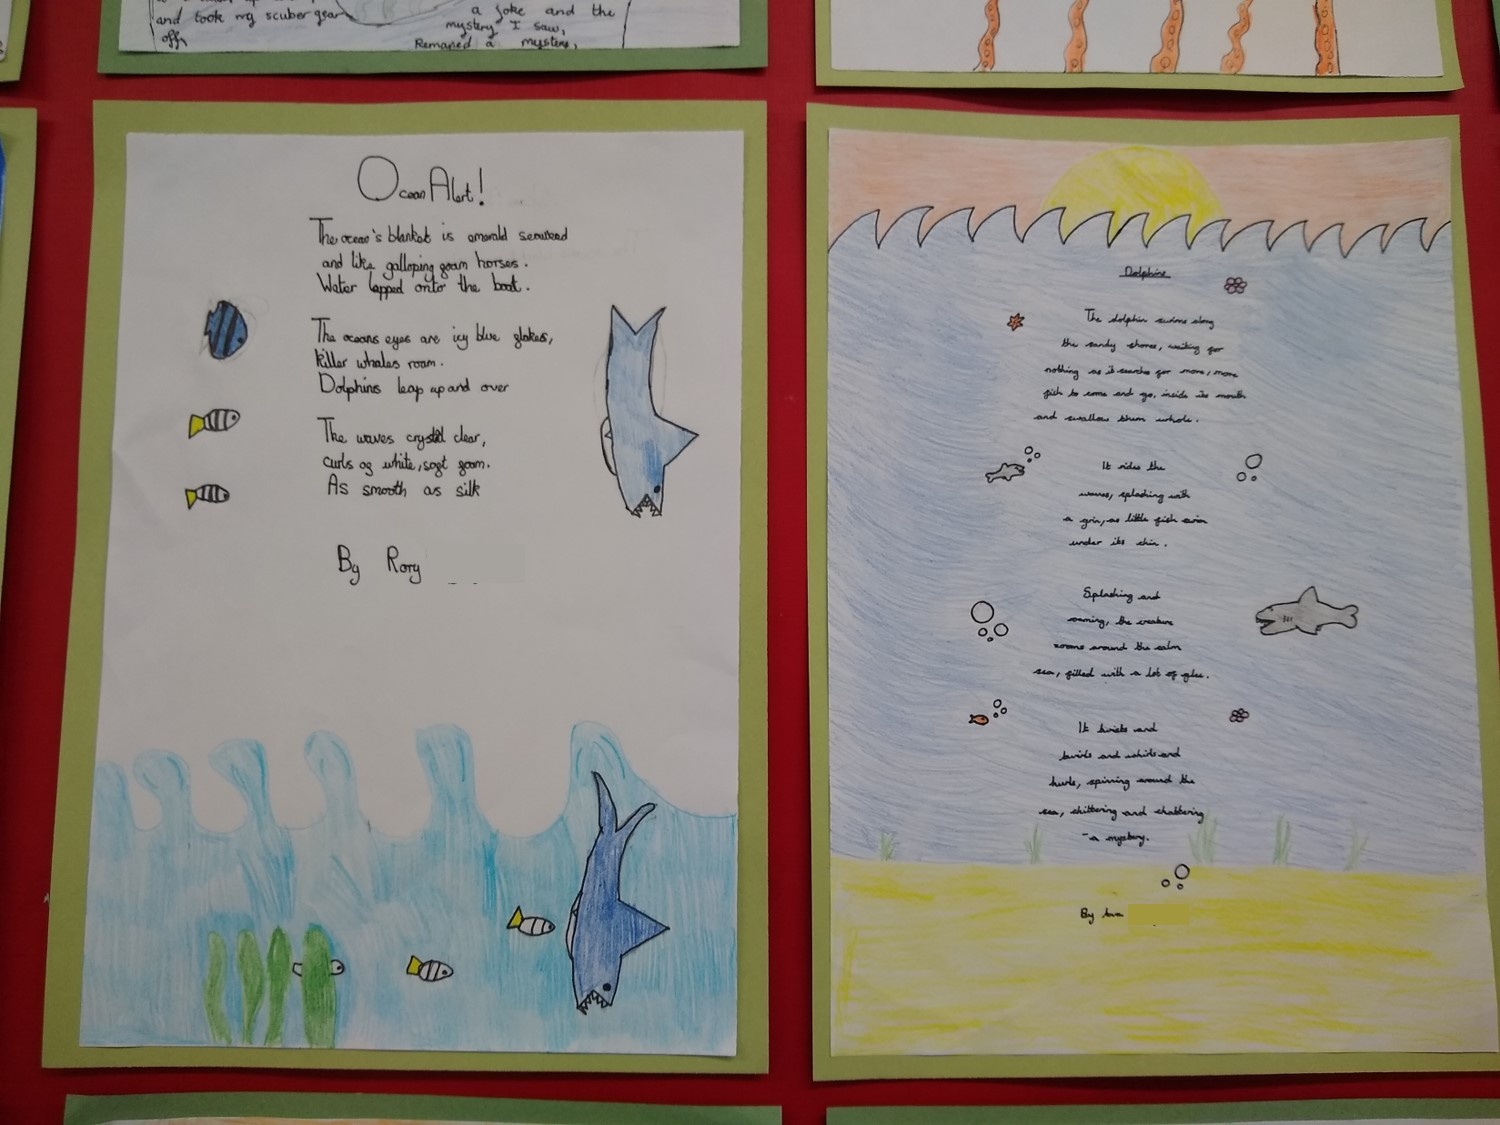 and took my scuber gear
off,
a joke and the
mystery I saw,
Remaned a mystere,
Ocean Alert!
The ocean's blanket is emerald seaweed
and like galloping foam horses.
Water lapped onto the boat.
The oceans eyes are icy blue flakes,
killer whales roam.
Dolphins leap up and over
The waves crystal clear,
curls of white, soft foam.
As smooth as silk
By Rory
Dolphins
The dolphin swims along
the sandy shores, waiting for
nothing as it searches for more, more
fish to come and go, inside its mouth
and swallow them whole.
It rides the
waves, splashing with
a grin, as little fish swim
under its chin.
Splashing and
roaming, the creature
zooms around the calm
sea, filled with a lot of glee.
It twists and
twirls and whirls and
hurls, spinning around the
sea, chittering and chattering
- a mystery.
By